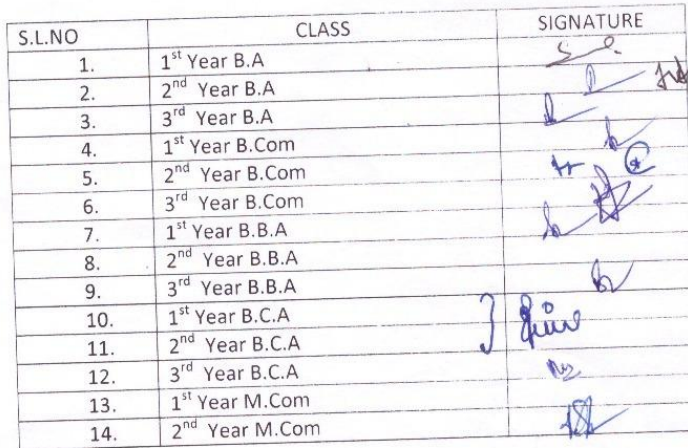 S.L.NO CLASS SIGNATURE
1. 1st Year B.A
2. 2nd Year B.A
3. 3rd Year B.A
4. 1st Year B.Com
5. 2nd Year B.Com
6. 3rd Year B.Com
7. 1st Year B.B.A
8. 2nd Year B.B.A
9. 3rd Year B.B.A
10. 1st Year B.C.A
11. 2nd Year B.C.A
12. 3rd Year B.C.A
13. 1st Year M.Com
14. 2nd Year M.Com